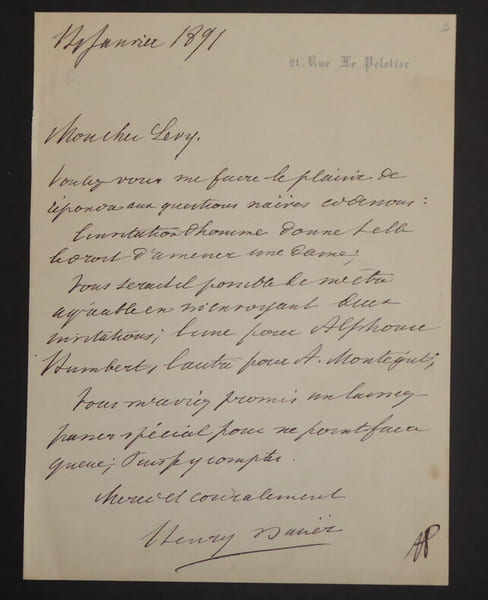 Janvier 1891
21. Rue Le Peletier
Mon cher Levy.
Voulez vous me faire le plaisir de
répondre aux questions naïves ci-dessous:
L'invitation d'homme donne t elle
le droit d'amener une dame;
Vous serait il possible de m'être
agréable en m'envoyant deux
invitations; l'une pour Alphonse
Humbert, l'autre pour A. Montégut;
Vous m'aviez promis un laissez
passer spécial pour ne point faire
queue; Puis-je y compter.
Merci et cordialement
Henry